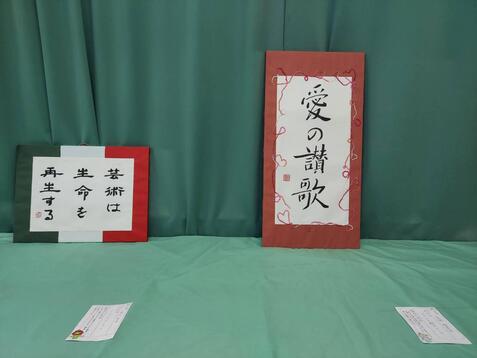 芸術は
生命を
再生する
愛の讃歌